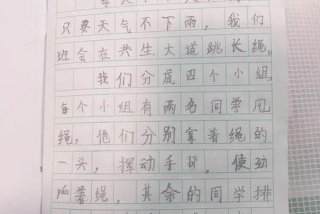 每天
只要天气不下雨，我们
班会在共生大道跳长绳。
我们分成四个小组，
每个小组有两名同学甩
绳，他们分别拿着绳的
一头，挥动手臂，使劲
着绳，其余的同学排